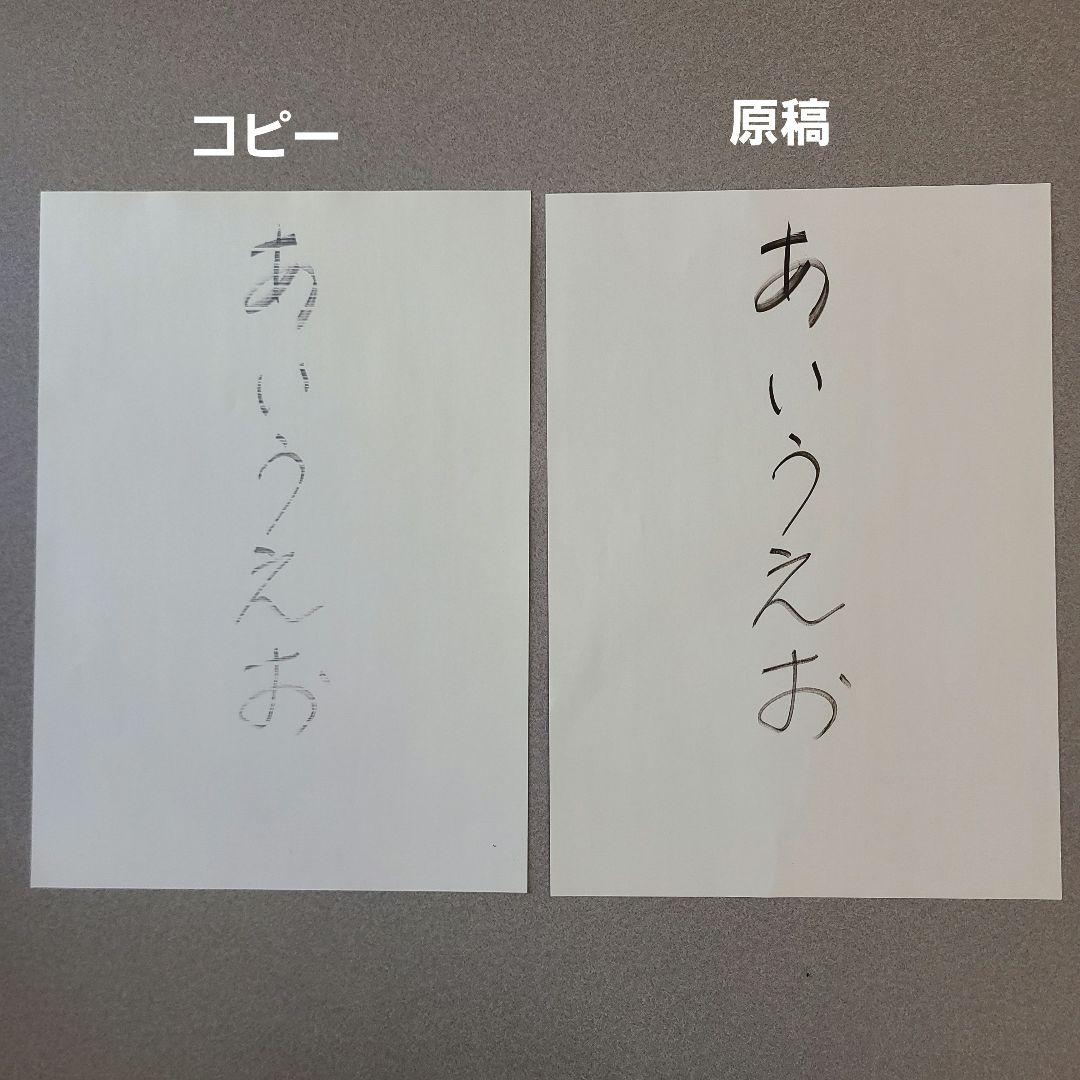 コピー
あいうえお
原稿
あいうえお